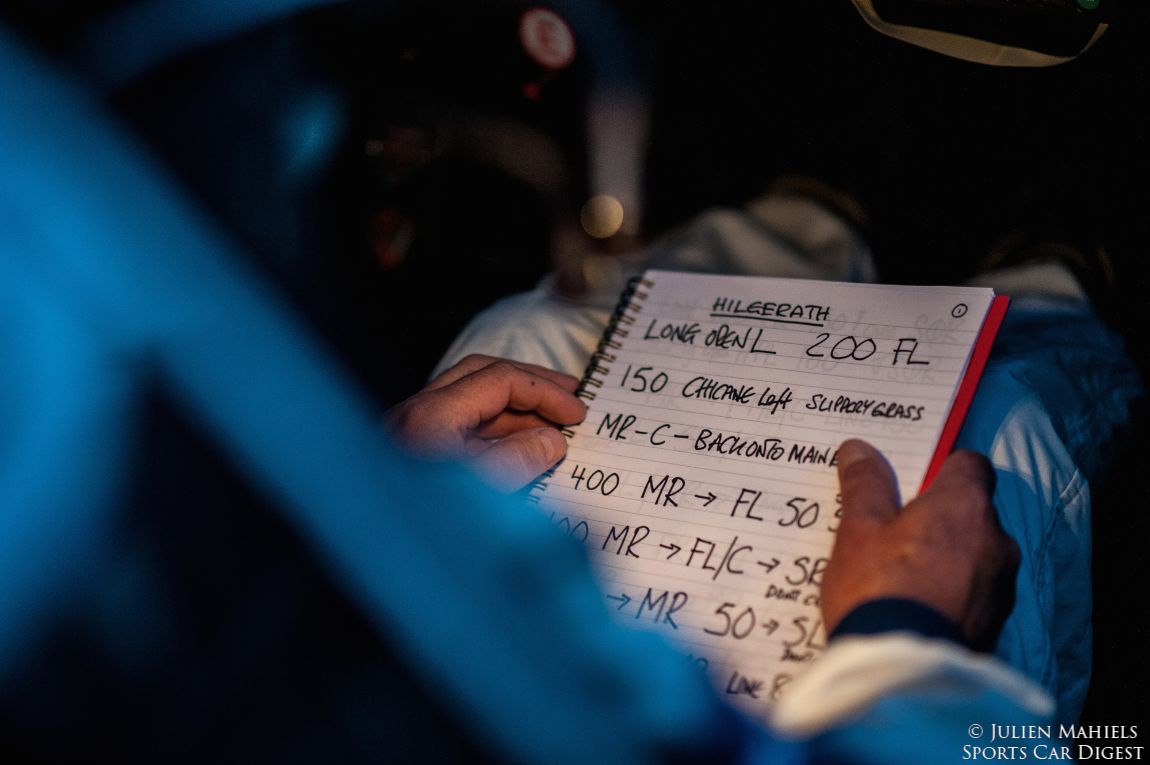 HILGERATH ①
LONG OPEN L 200 FL
150 CHICANE Left SLIPPORY GRASS
MR-C-BACK ONTO MAIN
400 MR → FL 50
MR → FL/C → SR
DONT
→ MR 50 → SL
LINE
© JULIEN MAHIELS
SPORTS CAR DIGEST